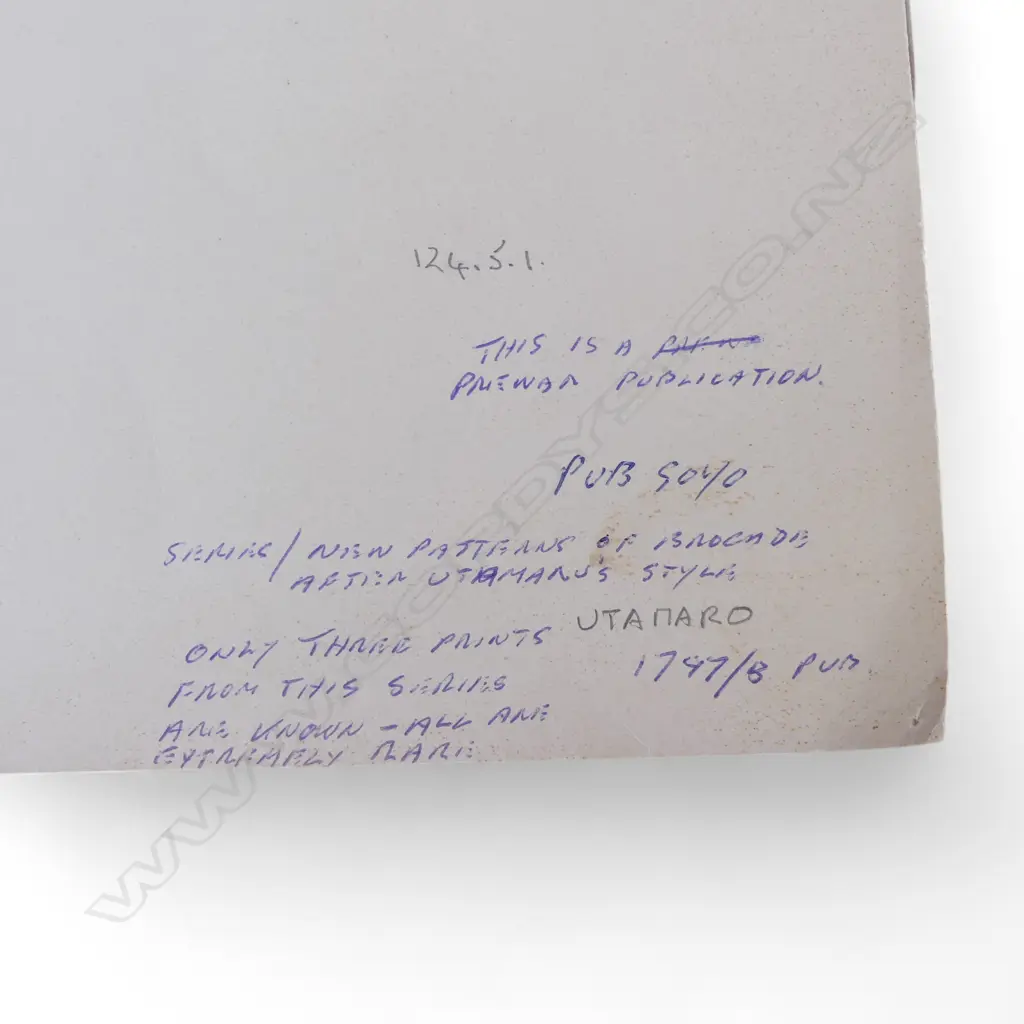 124.5.1.
THIS IS A
PREWAR PUBLICATION.
PUB GOYO
SERIES/ NEW PATTERNS OF BROCADE
AFTER UTAMARO'S STYLE
UTAMARO
ONLY THREE PRINTS
1797/8 PUB
FROM THIS SERIES
ARE KNOWN - ALL ARE
EXTREMELY RARE
WWW.CORDYS.CO.NZ